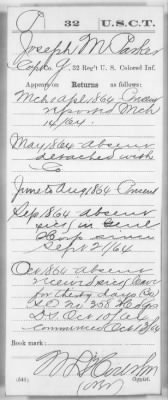 P | 32 | U.S.C.T.
Joseph M. Parker
Capt. Co. G, 32 Reg't U. S. Colored Inf.
Appears on Returns as follows:
Mch & Apl 1864
reported Mch
14/64.
May 1864 absent
detached with
Co
June to Aug 1864 Present
Sep 1864 absent
sick in
Hosp since
Sept 21/64
Oct 1864 absent
received sick leave
for thirty days
S.O. No
D.S. Oct 10/64
commenced Oct 13/64
Book mark:
(546)
Copyist.